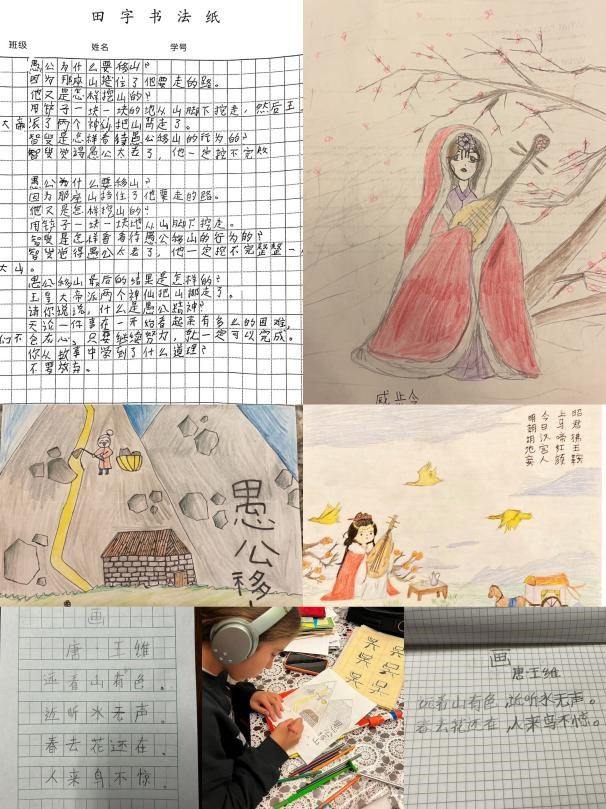 田字书法纸
班级 姓名 学号
愚公为什么要移山?
因为那座山挡住了他要走的路。
他又是怎样挖山的?
用铲子一块一块的地从山脚下挖走,然后玉
大帝派了两个神仙把山背走了。
智叟是怎样看待愚公移山的行为的?
智叟觉得愚公太老了,他一定挖不完
愚公为什么要移山?
因为那座山挡住了他要走的路。
他又是怎样挖山的?
用铲子一块一块地从山脚下挖走。
智叟是怎样看看待愚公移山的行为的?
智叟觉得愚公太老了,他一定挖不完整整一
大山。
愚公移山最后的结果是怎样的?
玉皇大帝派两个神仙把山挪走了。
请你说说,什么是愚公精神?
无论一件事在一开始看起来有多么的困难,
们不会灰心,只要继续努力,就一定可以完成。
你从故事中学到了什么道理?
不要放弃。
愚公移
昭君拂玉鞍
上马啼红颜
今日汉宫人
明朝胡地妾
画
唐 王维
远看山有色。
近听水无声。
春去花还在。
人来鸟不惊。
愚公移山
画
唐·王维
远看山有色,近听水无声。
春去花还在,人来鸟不惊。